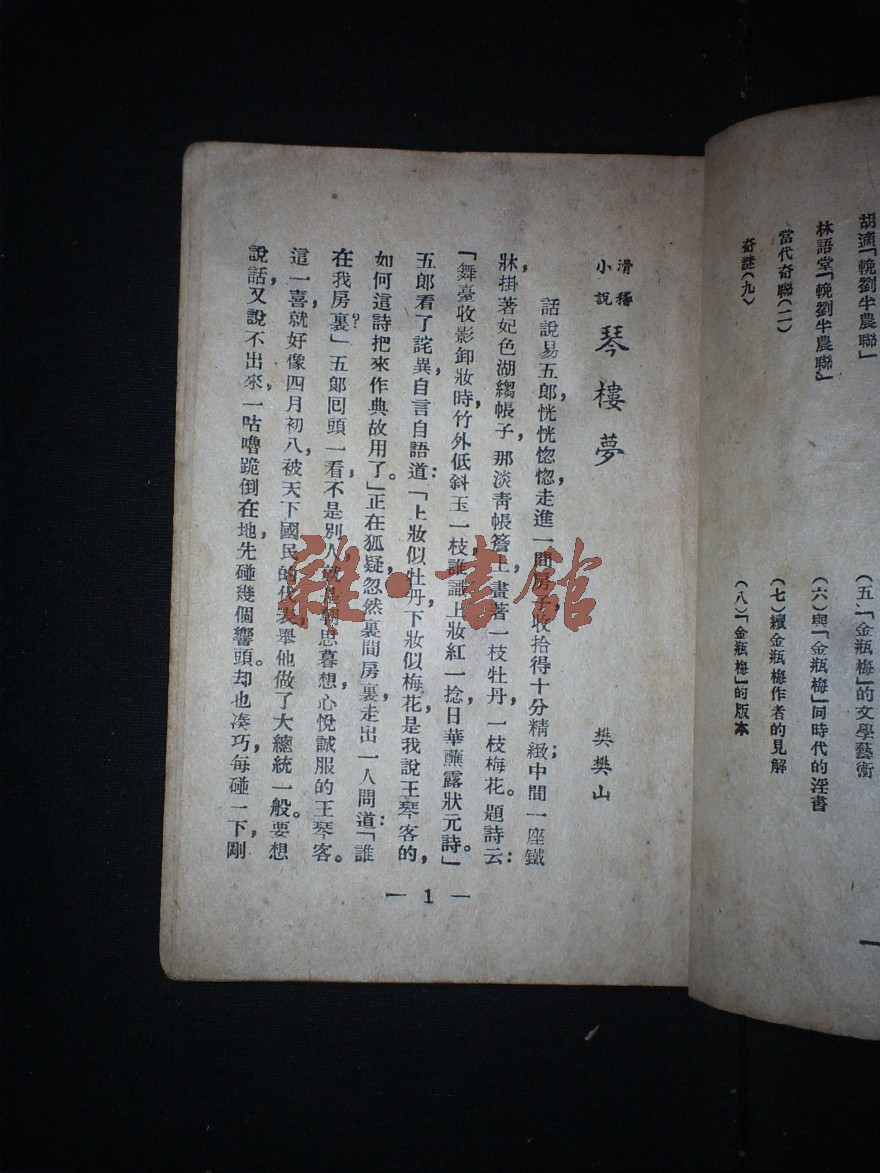 胡適「輓劉半農聯」
林語堂「輓劉半農聯」
當代奇聯(一)
奇謎(九)
(五)「金瓶梅」的文學藝術
(六)與「金瓶梅」同時代的淫書
(七)續金瓶梅作者的見解
(八)「金瓶梅」的版本
滑稽小說 琴樓夢
樊樊山
話說易五郎恍恍惚惚,走進一間房子,收拾得十分精緻;中間一座鐵
牀,掛著妃色湖縐帳子,那淡靑帳簷上,畫著一枝牡丹,一枝梅花。題詩云:
「舞臺收影卸妝時,竹外低斜玉一枝,誰識上妝紅一捻,日華蘸露狀元詩。」
五郎看了詫異,自言自語道:「上妝似牡丹,下妝似梅花,是我說王琴客的,
如何這詩把來作典故用了。」正在狐疑,忽然裏間房裏,走出一人問道:「誰
在我房裏?」五郎囘頭一看,不是別人,就是朝思暮想,心悅誠服的王琴客。
這一喜,就好像四月初八,被天下國民的代表,舉他做了大總統一般。要想
說話,又說不出來,一咕嚕跪倒在地,先碰幾個響頭。却也湊巧,每碰一下,剛
— 1 —
雜·書館